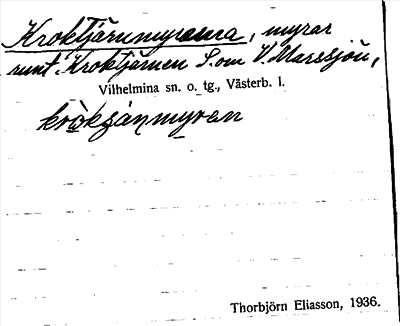 Kroktjärnmyrarna, myrar
runt Kroktjärnen S. om V. Marssjön,
Vilhelmina sn. o. tg., Västerb. l.
kròkȷánmyren
Thorbjörn Eliasson, 1936.